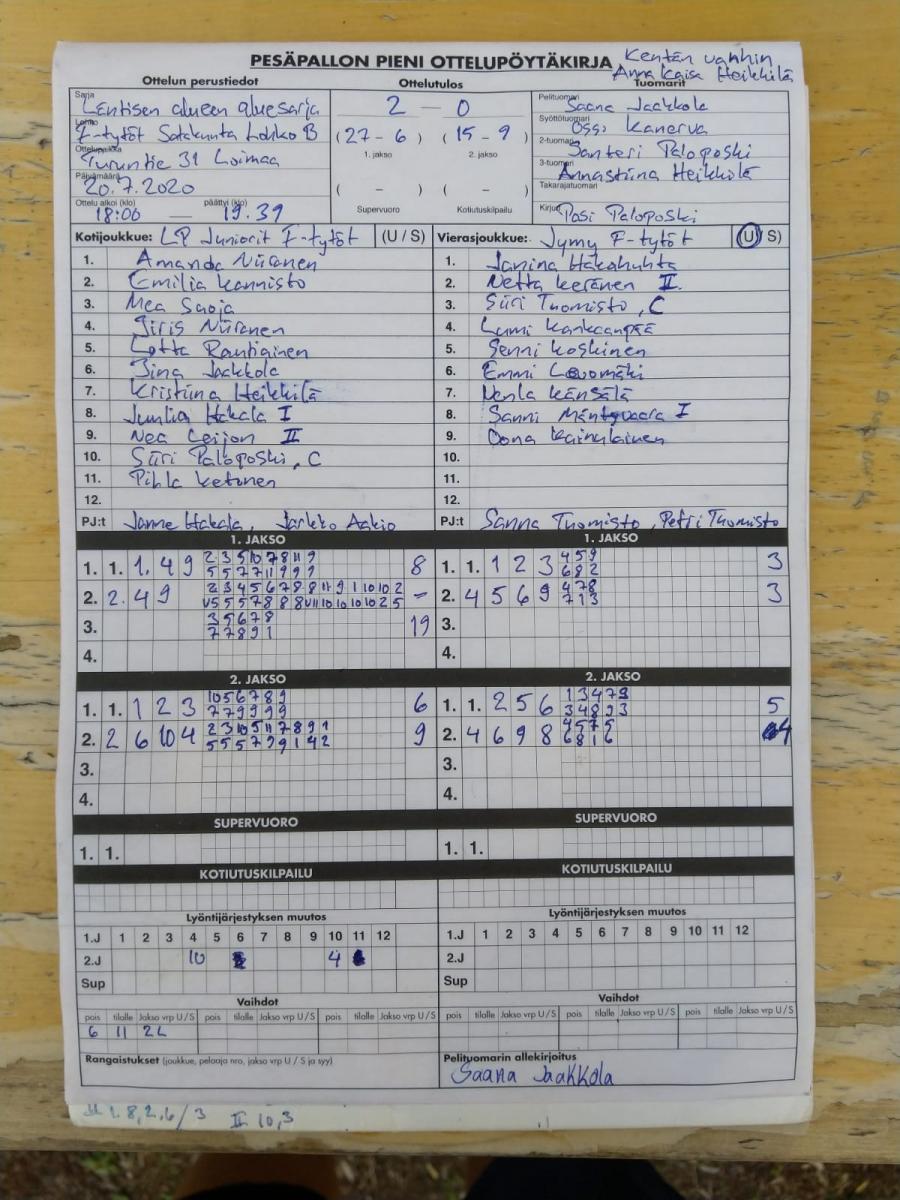 PESÄPALLON PIENI OTTELUPÖYTÄKIRJA
Kentän vanhin
Anna Kaisa Heikkilä
Ottelun perustiedot
Ottelutulos
Tuomarit
Sarja
Läntisen alueen aluesarja
Lohko
F-tytöt Satakunta Lohko B
Ottelupaikka
Turuntie 31 Loimaa
Päivämäärä
20.7.2020
Ottelu alkoi (klo) päättyi (klo)
18:06 — 19.39
2 – 0
(27 – 6) (15 – 9)
1. jakso 2. jakso
( – ) ( – )
Supervuoro Kotiutuskilpailu
Pelituomari
Saana Jaakkola
Syöttötuomari
Ossi Kanerva
2-tuomari
Santeri Paloposki
3-tuomari
Annastiina Heikkilä
Takarajatuomari
Kirjuri
Pasi Paloposki
Kotijoukkue: LP Juniorit F-tytöt (U / S)
1. Amanda Niiranen
2. Emilia Kannisto
3. Mea Suoja
4. Iiris Niiranen
5. Lotta Rautiainen
6. Iina Jaakkola
7. Kristiina Heikkilä
8. Juulia Hakala I
9. Nea Leijon II
10. Siiri Paloposki, C
11. Pihla Ketonen
12.
PJ:t Janne Hakala, Jarkko Aakio
Vierasjoukkue: Jymy F-tytöt (U S)
1. Janina Hakahuhta
2. Netta Keränen II
3. Siiri Tuomisto, C
4. Lumi Kankaanpää
5. Senni Koskinen
6. Emmi Levomäki
7. Venla Känsälä
8. Sanni Mäntyvaara I
9. Oona Kainulainen
10.
11.
12.
PJ:t Sanna Tuomisto, Petri Tuomisto
1. JAKSO
1. 1. 1. 4 9 2 3 5 10 7 8 11 9 8
5 5 7 7 11 9 9 9
2. 2. 4 9 2 3 4 5 6 7 8 8 11 9 1 10 10 2 –
3. 3 5 6 7 8 19
7 7 8 9 1
4.
1. JAKSO
1. 1. 1 2 3 4 5 9 3
6 8 2
2. 4 5 6 9 4 7 8 3
7 1 3
3.
4.
2. JAKSO
1. 1. 1 2 3 10 5 6 7 8 9 6
7 7 9 9 9 9
2. 2 6 10 4 2 3 10 5 11 7 8 9 1 9
5 5 5 7 9 9 1 4 2
3.
4.
2. JAKSO
1. 1. 2 5 6 1 3 4 7 9 5
3 4 8 9 3
2. 4 6 9 8 4 5 7 5 4
6 8 1 6
3.
4.
SUPERVUORO
1. 1.
SUPERVUORO
1. 1.
KOTIUTUSKILPAILU
KOTIUTUSKILPAILU
Lyöntijärjestyksen muutos
1.J 1 2 3 4 5 6 7 8 9 10 11 12
2.J 10 4
Sup
Lyöntijärjestyksen muutos
1.J 1 2 3 4 5 6 7 8 9 10 11 12
2.J
Sup
Vaihdot
pois tilalle Jakso vrp U/S pois tilalle Jakso vrp U/S pois tilalle Jakso vrp U/S
6 11 2L
Vaihdot
pois tilalle Jakso vrp U/S pois tilalle Jakso vrp U/S pois tilalle Jakso vrp U/S
Rangaistukset (joukkue, pelaaja nro, jakso vrp U / S ja syy)
Pelituomarin allekirjoitus
Saana Jaakkola
1.8, 2.6/3 II 10,3